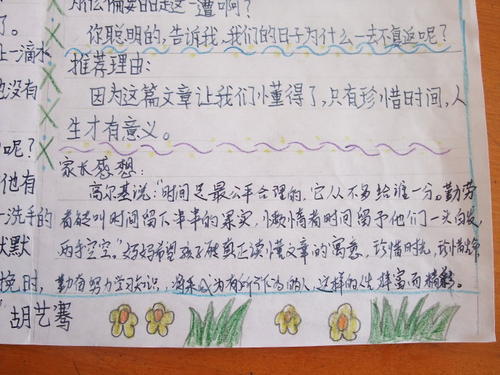 那么偏要白白走这一遭啊?
你聪明的,告诉我,我们的日子为什么一去不复返呢?
推荐理由:
因为这篇文章让我们懂得了,只有珍惜时间,人
生才有意义。
家长感想:
高尔基说:"时间是最公平合理的,它从不多给谁一分。勤劳
者能叫时间留下串串的果实,懒惰者时间留予他们一头白发,
两手空空。"妈妈希望孩子能真正读懂文章的寓意,珍惜时光,珍惜生命
勤奋努力学习知识,将来成为有所作为的人,这样的人生丰富而精彩。
上一滴水
了。
也没有
呢?
他有
一洗手的
默默
挽时,
"胡艺骞